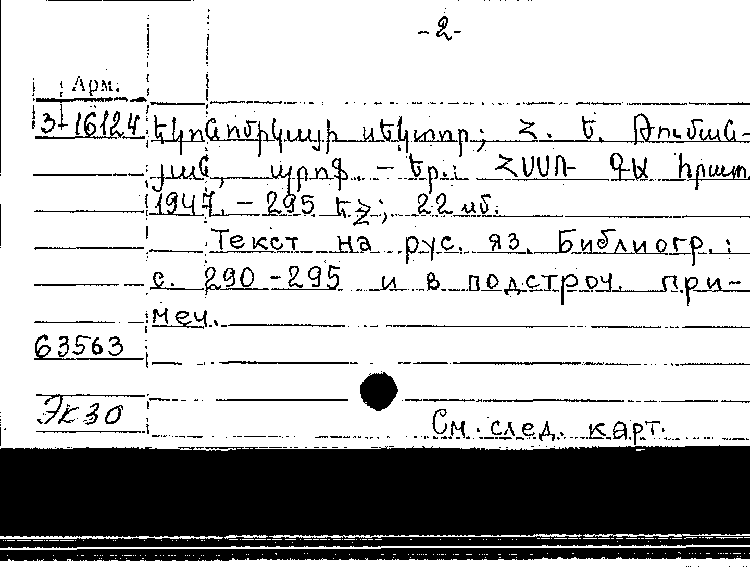 -2-
Арм.
3-16124
էկոնոմիկայի սեկտոր; Հ. Ե. Թուման-
յան, պրոֆ. - Եր.: ՀՍՍՌ ԳԱ հրատ.
1947. - 295 էջ; 22 սմ.
Текст на рус. яз. Библиогр.:
с. 290-295 и в подстроч. при-
меч.
63563
Эк30
См. след. карт.